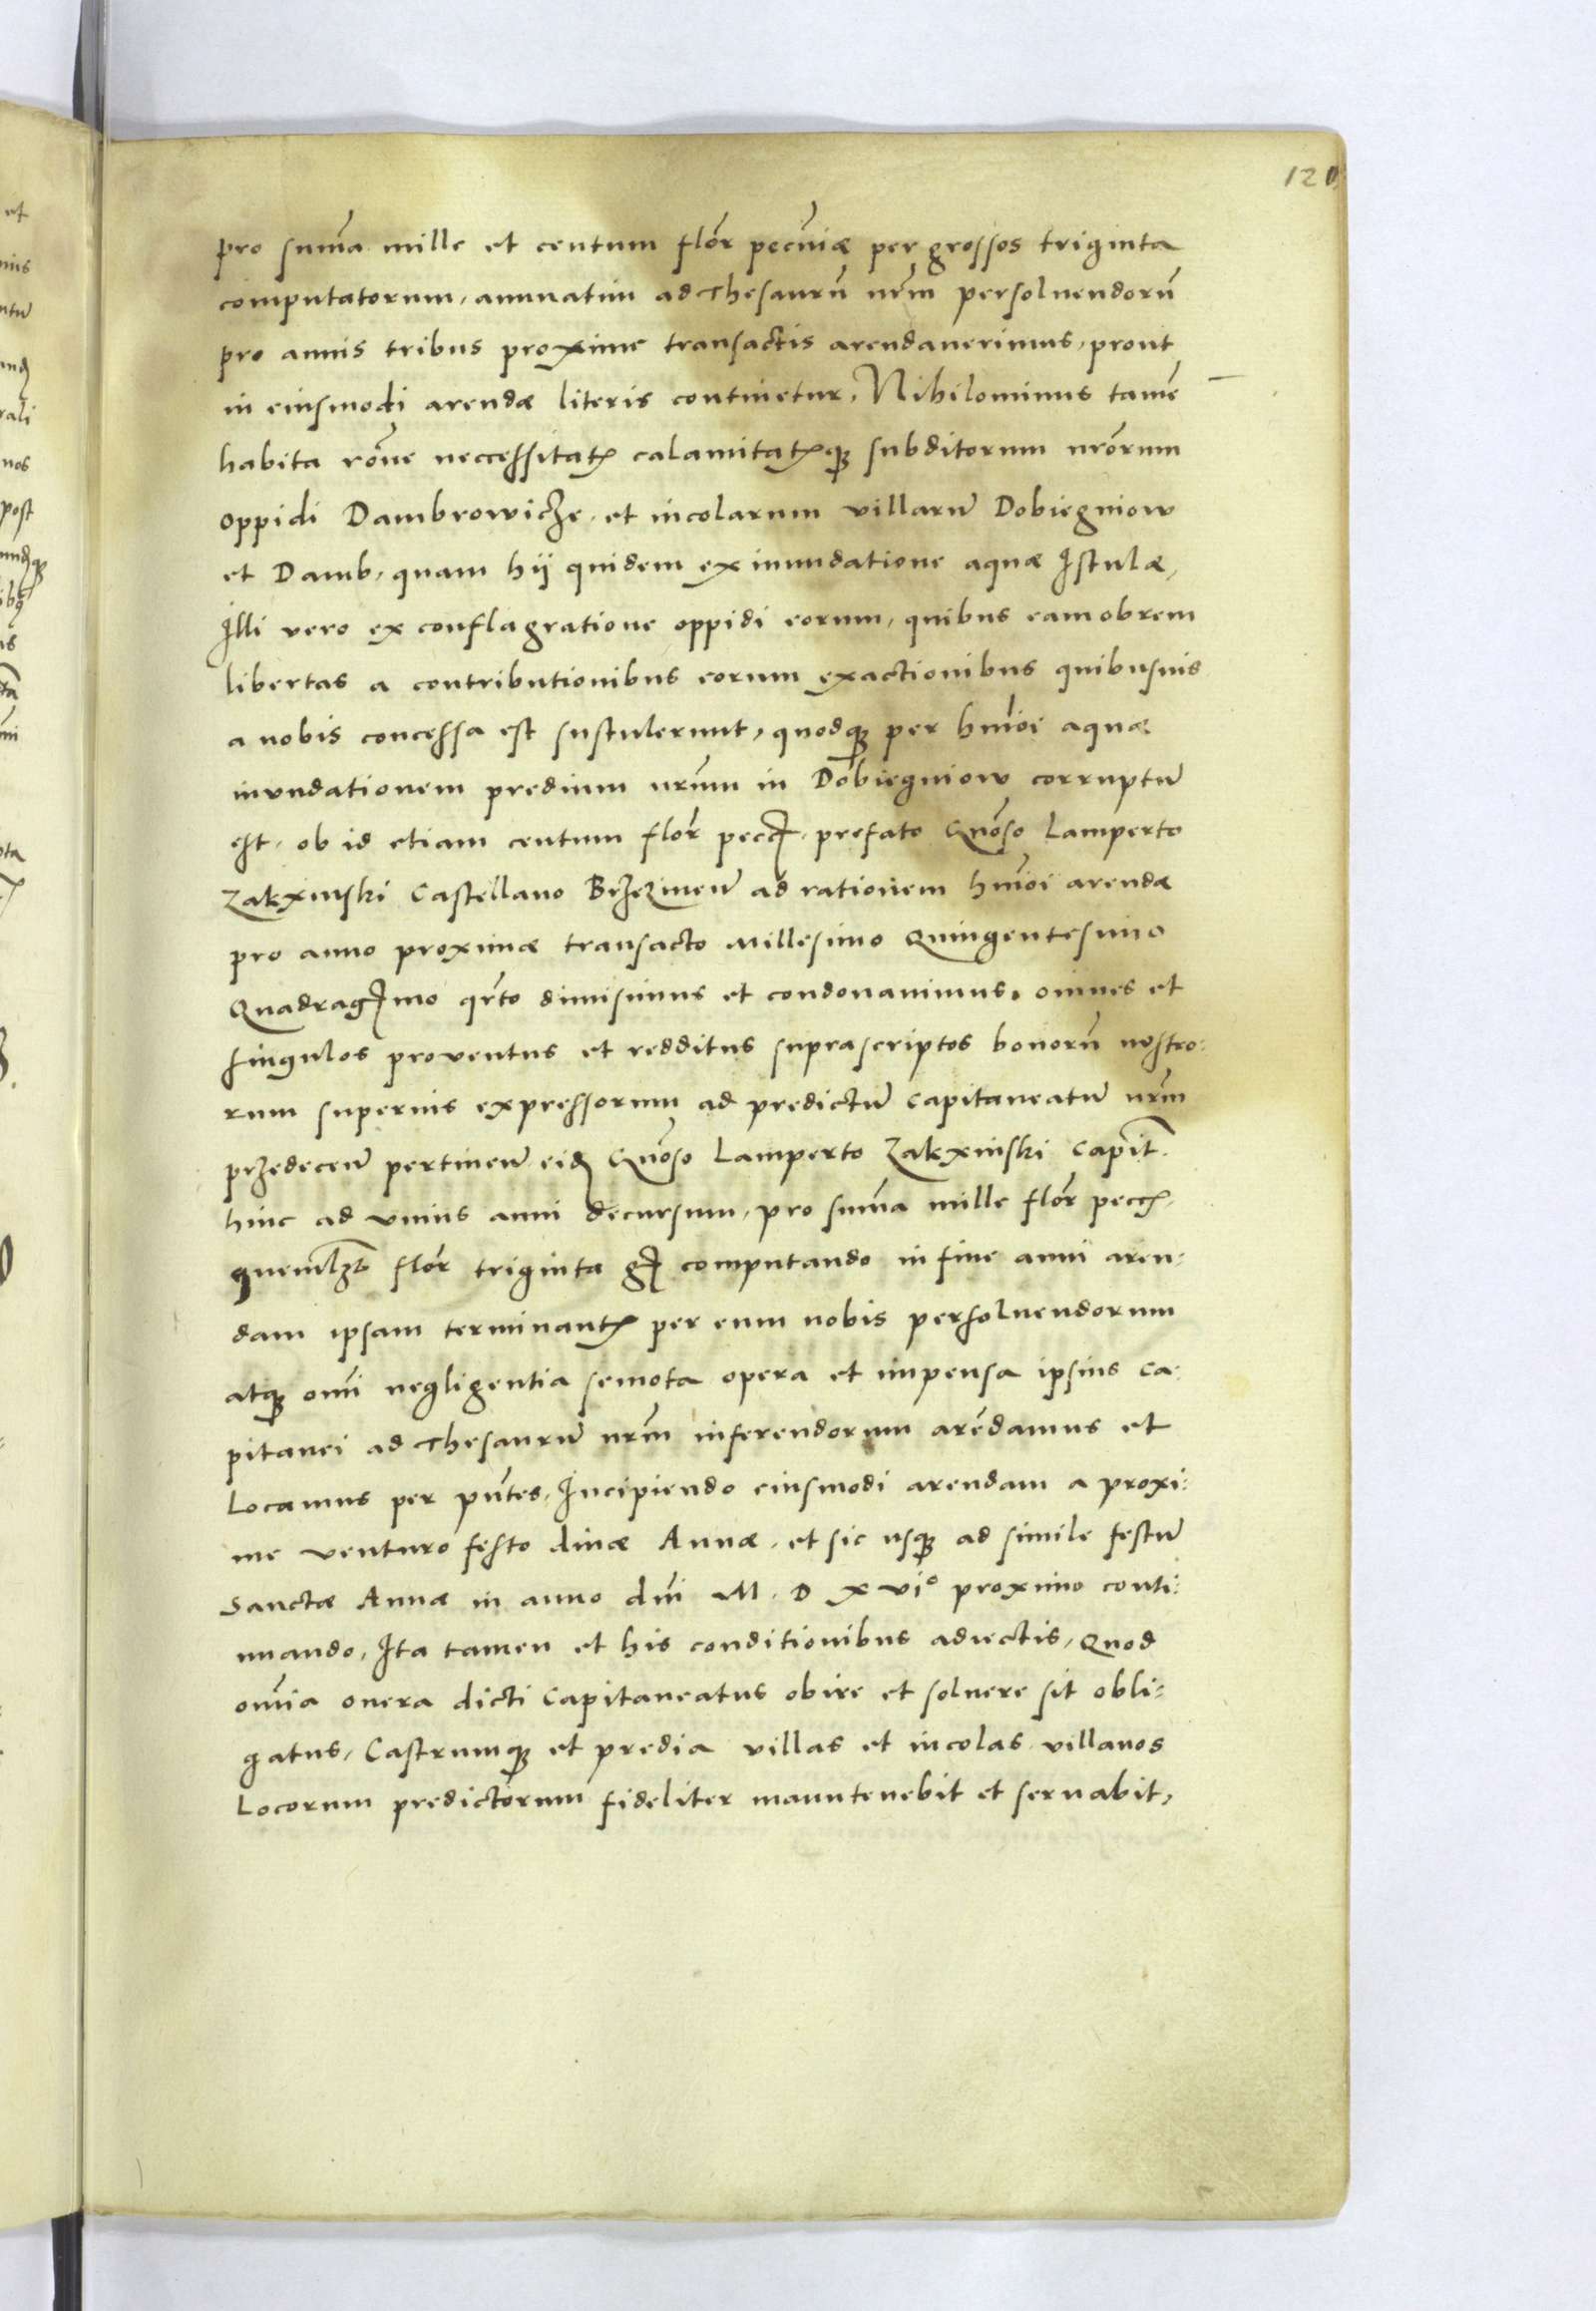 120
pro sum̄a mille et centum flor̄ pecuniæ per grossos triginta
computatorum, annuatim ad Thesaurū nr̄m persoluendorū
pro annis tribus proxime transactis arendauerimus, prout
in eiusmodi arendæ literis continetur, Nihilominus tamē
habita rōne neccessitatꝭ calamitatꝭqꝫ subditorum nrōrum
oppidi Dambrowicze, et incolarum villarū Dobiegniow
et Damb, quam hÿ quidem ex inundatione aquæ Istulæ,
Illi vero ex conflagratione oppidi eorum, quibus eam obrem
libertas a contributionibus eorum exactionibus quibusuis
a nobis concessa est sustulerunt, quodqꝫ per hmōi aquæ
invndationem predium nrūm in Dobiegniow corruptū
est, ob id etiam centum flor̄ pecꝭ, prefato Gnōso Lamperto
Zakxinski Castellano Brzezinen̄ ad rationem hmōi arendæ
pro anno proximæ transacto Millesimo Quingentesimo
Quadragꝭmo qr̄to dimisimus et condonauimus, omnes et
singulos proventus et redditus suprascriptos bonorū nostro:
rum superius expressorum ad predictū Capitaneatū nr̄m
przedecen̄ pertinen̄ eidꝫ Gnōso Lamperto Zakxinski Capit̄.
hinc ad vnius anni decursum, pro sum̄a mille flor̄ pecꝭ,
quemlꝫt flor̄ triginta gꝭ computando in fine anni aren:
dam ipsam terminantꝭ per eum nobis persoluendorum
atqꝫ omī negligentia semota opera et impensa ipsius Ca:
pitanei ad Thesaurū nr̄m inferendorum arēdamus et
Locamus per pn̄tes, Incipiendo eiusmodi arendam a proxi:
me venturo festo diuæ Annæ, et sic usqꝫ ad simile festū
Sanctæ Annæ in anno dn̄i M. D XVIº proximo conti:
nuando, Ita tamen et his conditionibus adiectis, Quod
om̄ia onera dicti Capitaneatus obire et soluere sit obli:
gatus, Castrumqꝫ et predia villas et incolas villanos
Locorum predictorum fideliter manutenebit et seruabit,